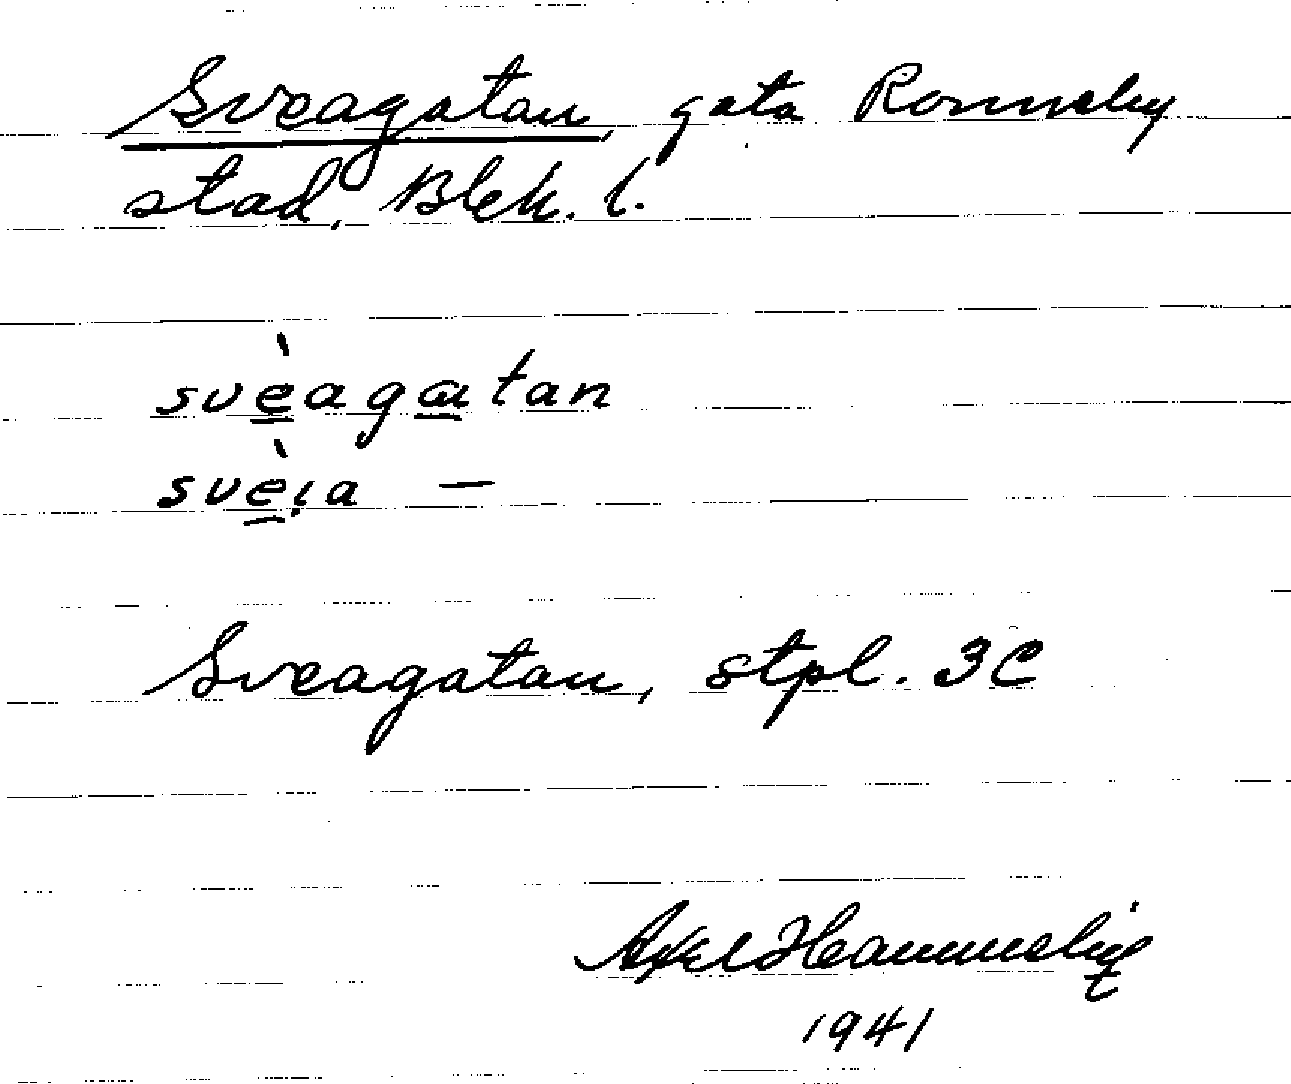 Sveagatan, gata Ronneby
stad, Blek. l.
svèagɑtan
svèi̯a –
Sveagatan, stpl. 3C
Axel
1941